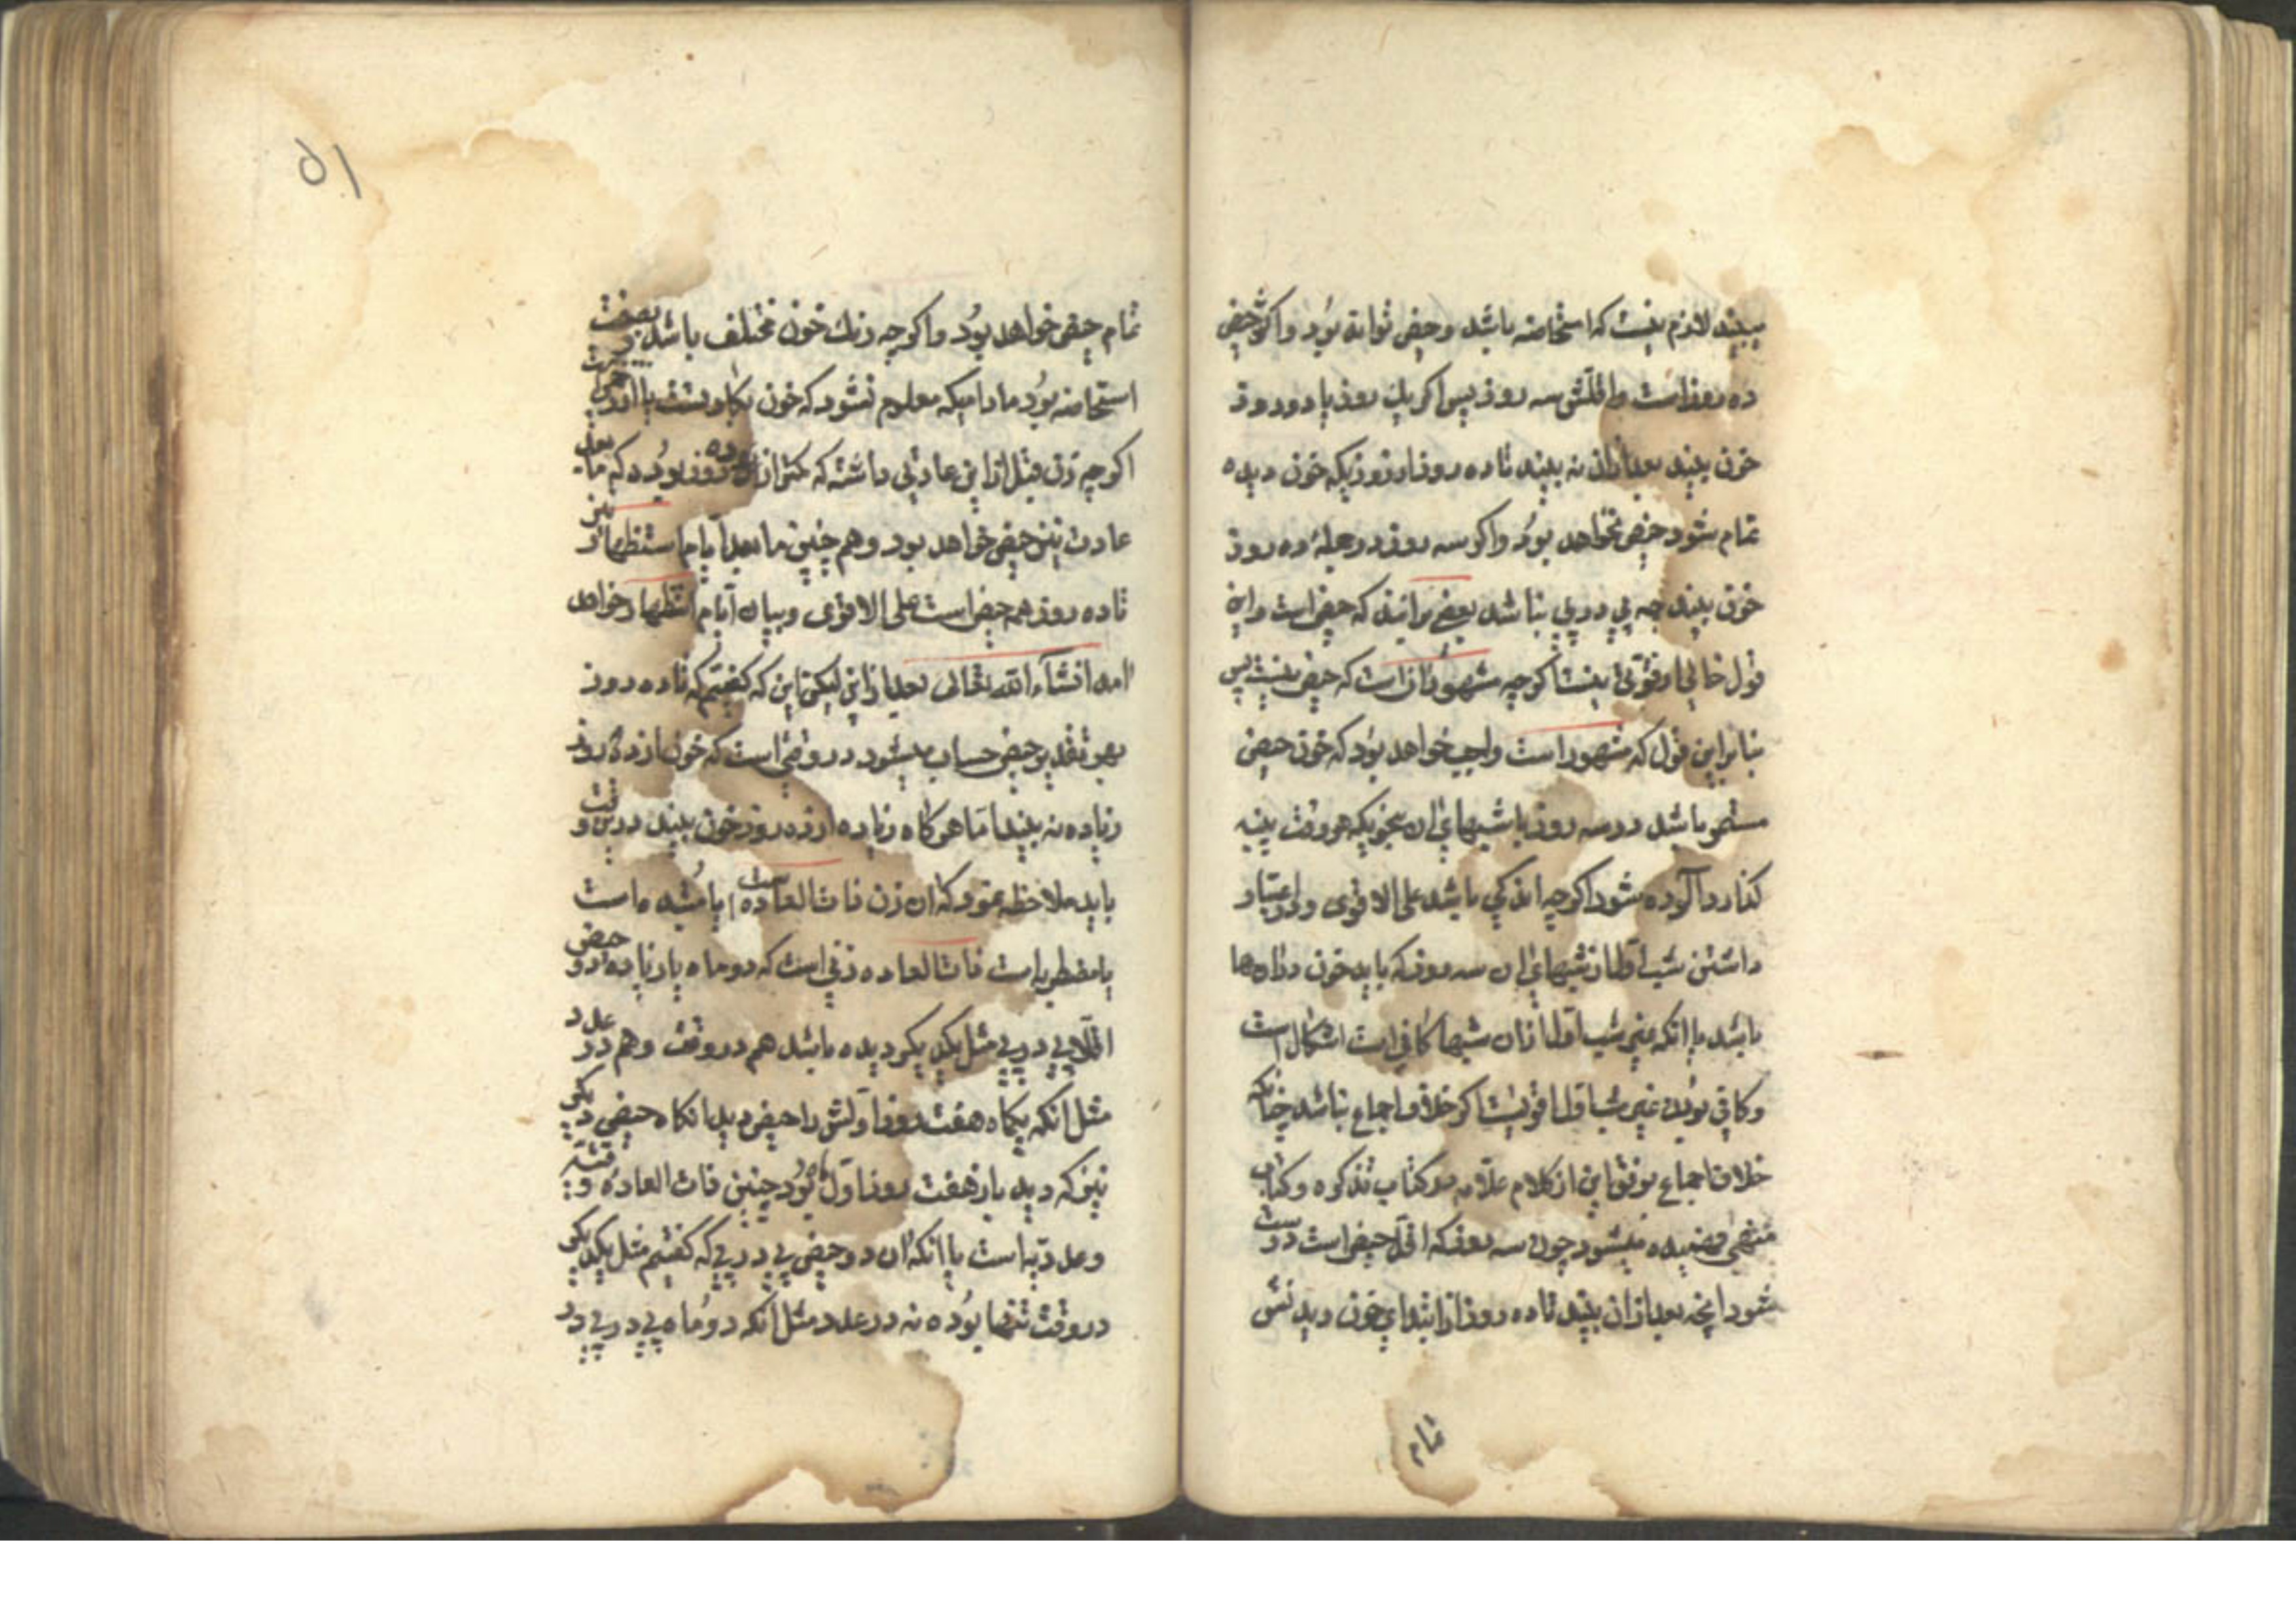 ببیند لازم نیست که استحاضه باشد و حیض تواند بود و اکثر حیض
ده روز است و اقلش سه روز پس اگر یك روز یا دو روز
خون بیند بعد از ان نه بیند تا ده روز از روزیکه خون دیده
تمام شود حیض نخواهد بود و اگر سه روز در جملهٔ ده روز
خون بیند چه پی در پی نباشد بعضی برانند که حیض است و این
قول خالی از قوتی نیست اگرچه مشهور ان است که حیض نیست پس
بنابراین قول که مشهور است واجب خواهد بود که خون حیض
مستمر باشد در سه روز با شبهای ان بنحویکه هر وقت پنبه
گذارد آلوده شود اگرچه اندکی باشد علی الاقوی ولی اعتبار
داشتن شب اول از شبهای ان سه روز که باید خون در ان ها
باشد یا انکه غیر شب اول از ان شبها کافی است اشکال است
و کافی بودن غیر شب اول اقوی است اگر خلاف اجماع نباشد چنانکه
خلاف اجماع بودن این از کلام علامه در کتاب تذکره و کتاب
منتهی فهمیده میشود چون سه روز که اقل حیض است درست
شود انچه بعد از ان بیند تا ده روز از ابتدای خون دیدنش
تمام
۵۱
تمام حیض خواهد بود و اگرچه رنك خون مختلف باشد بصفت
استحاضه بود مادامیکه معلوم نشود که خون بکارتست یا از جراحت
اگرچه زن قبل از این عادتی داشته که کمتر از ده روز بوده که مابعد
عادت نیز حیض خواهد بود و هم چنین مابعد ایام استظهار نیز
تا ده روز همه حیض است علی الاقوی و بیان ایام استظهار خواهد
امد انشآء الله تعالی بعد از این لیکن این که گفتیم که تا ده روز
بهر تقدیر حیض حساب میشود در وقتی است که خون از ده روز
زیاده نه بیند اما هرگاه زیاده از ده روز خون بیند در این وقت
باید ملاحظه نمود که ان زن ذات العاده است یا مبتدءه است
یا مضطربه است ذات العاده زنی است که دو ماه یا زیاده دو حیض
اقلا پی در پی مثل یکدیگر دیده باشد هم در وقت و هم در عدد
مثل انکه یکماه هفت روز اولش را حیض دید انگاه حیض دیگر
نیز که دید باز هفت روز اول ماه بود چنین ذات العاده وقتیه
و عددیه است یا انکه ان دو حیض پی در پی که گفتیم مثل یکدیگر
در وقت تنها بوده نه در عدد مثل انکه دو ماه پی در پی در